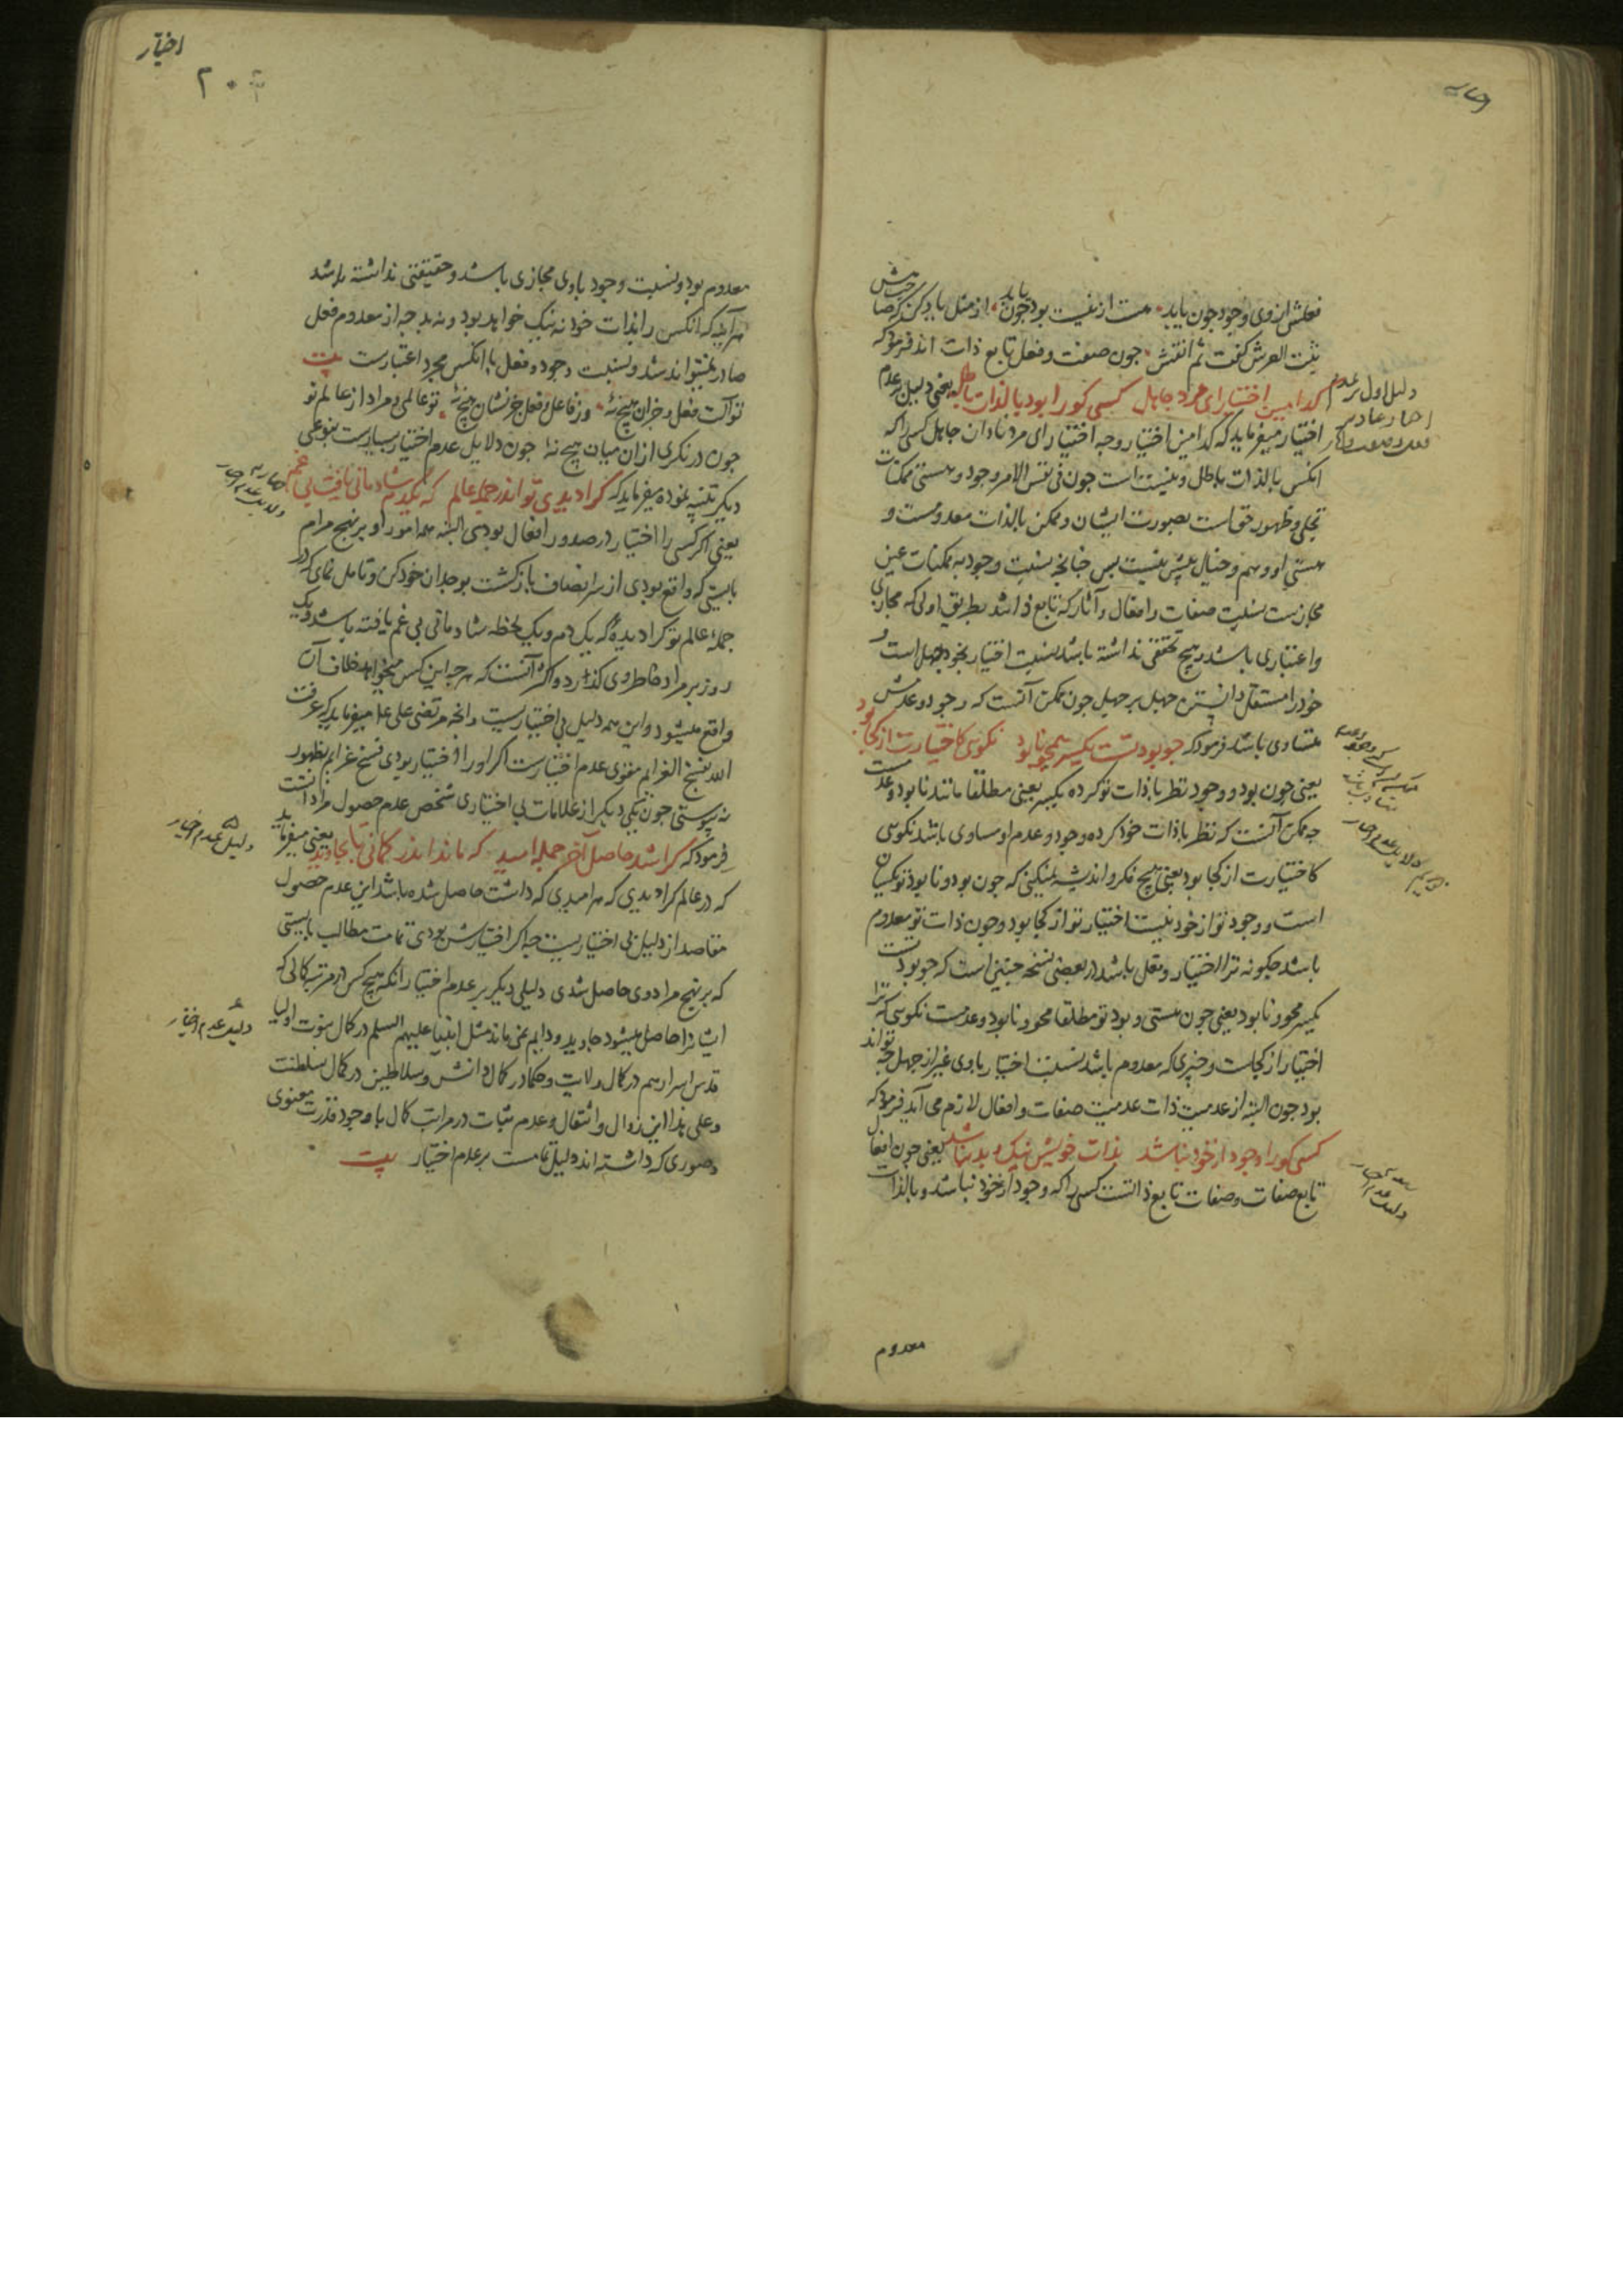 فعلش از وی او وجود چون یابد هست از نیست بود چون باید از مثل یاد کن که صاحبش
ثبت العرش گفت ثم انقش چون صفت و فعل تابع ذات اند فرمود که
کدامین اختیار ای مرد جاهل کسی کو را بود بالذات باطل یعنی دلیل بر عدم
اختیار میفرماید که کدامین اختیار و چه اختیار ای مرد نادان جاهل کسی را که
انکس بالذات باطل و نیست است چون فی نفس الامر وجود و هستی ممکنات
تجلی و ظهور حق است بصورت ایشان و ممکن بالذات معدومست و
هستی او وهم و خیال بیش نیست پس چنانچه نسبت وجود به ممکنات عین
مجازیست نسبت صفات و افعال و آثار که تابع ذاتند بطریق اولی که مجازی
و اعتباری باشد و هیچ تحققی نداشته باشد نسبت اختیار بخود جهل است و
خود را مستقل دانستن جهل بر جهل چون ممکن آنست که وجود و عدمش
متساوی باشد فرمود که چو بود تست یکسر همچو نابود نگویی کاختیارت از کجا بود
یعنی چون بود و وجود تو نظر با ذات تو کرده یکسر یعنی مطلقا مانند نابود و عدمست
چه ممکن آنست که نظر با ذات خود کرده وجود و عدم او مساوی باشد نگویی
کاختیارت از کجا بود یعنی هیچ فکر و اندیشه نمیکنی که چون بود و نابود تو یکسان
است و وجود تو از خود نیست اختیار تو از کجا بود و چون ذات تو معدوم
باشد چگونه ترا اختیار و فعل باشد در بعضی نسخه چنین است که چو بود تست
یکسر محو و نابود یعنی چون هستی و بود تو مطلقا محو و نابود و عدمست نگویی که ترا
اختیار از کجاست و چیزی که معدوم باشد نسبت اختیار باوی غیر از جهل چه تواند
بود چون البته از عدمیت ذات عدمیت صفات و افعال لازم می آید فرمود که
کسی کو را وجود از خود نباشد بذات خویش نیک و بد نباشد یعنی چون افعال
تابع صفات و صفات تابع ذاتست کسی را که وجود از خود نباشد و بالذات
معدوم
دلیل اول بر عدم
اختیار
۲۰۴
معدوم بود و نسبت وجود باوی مجازی باشد و حقیقتی نداشته باشد
هر آینه که انکس را بذات خود نه نیک خواهد بود و نه بد چه از معدوم فعل
صادر نمیتواند شد و نسبت وجود و فعل با انکس مجرد اعتبارست بیت
تو آلت فعل و جز آن هیچ نه وز فاعل و فعل جز نشان هیچ نه تو عالمی و مراد از عالم تو
چون در نکری از ان میان هیچ نه چون دلایل عدم اختیار بسیارست بنوعی
دیکر تنبیه نموده میفرماید که کرا دیدی تو اندر جمله عالم که یکدم شادمانی یافت بی غم
یعنی اکر کسی را اختیار در صدور افعال بودی البته همه امور او بر نهج مرام
بایستی که واقع بودی از سر انصاف بازکشت بوجدان خود کن و تامل نمای که در
جملهٔ عالم تو کرا دیدهٔ که یک دم و یک لحظه شادمانی بی غم یافته باشد و یک
روز بر مراد خاطر وی کذرد و اکثر آنست که هر چه این کس میخواهد خلاف آن
واقع میشود و این همه دلیل بی اختیاریست و انچه مرتضی علی میفرماید که عرفت
الله بفسخ العزایم مقوی عدم اختیارست اکر او را اختیار بودی فسخ عزایم بظهور
نه پیوستی چون یکی دیکر از علامات بی اختیاری شخص عدم حصول مراداتست
فرمود که کرا شد حاصل آخر جمله امید که ماند اندر کمالی تا بجاوید یعنی میفرماید
که در عالم کرا دیدی که هر امیدی که داشت حاصل شده باشد این عدم حصول
مقاصد از دلیل بی اختیاریست چه اکر اختیارش بودی تمامت مطالب بایستی
که بر نهج مراد وی حاصل شدی دلیلی دیکر بر عدم اختیار انکه هیچ کس در مرتبه کمالی که
ایشانرا حاصل میشود جاوید و دایم نمی ماند مثل انبیا علیهم السلم در کمال نبوت و اولیا
قدس اسرارهم در کمال ولایت و حکما در کمال دانش و سلاطین در کمال سلطنت
و علی هذا این زوال و انتقال و عدم ثبات در مراتب کمال با وجود قدرت معنوی
و صوری که داشته اند دلیل تمامست بر عدم اختیار بیت
دلیل عدم اختیار
دلیل عدم اختیار